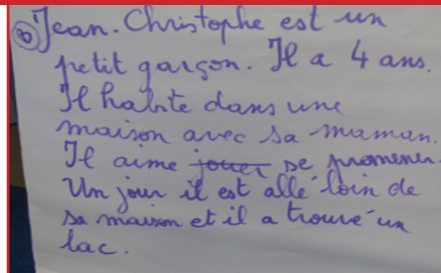 6 Jean-Christophe est un
petit garçon. Il a 4 ans.
Il habite dans une
maison avec sa maman.
Il aime jouer se promener.
Un jour il est allé loin de
sa maison et il a trouvé un
lac.